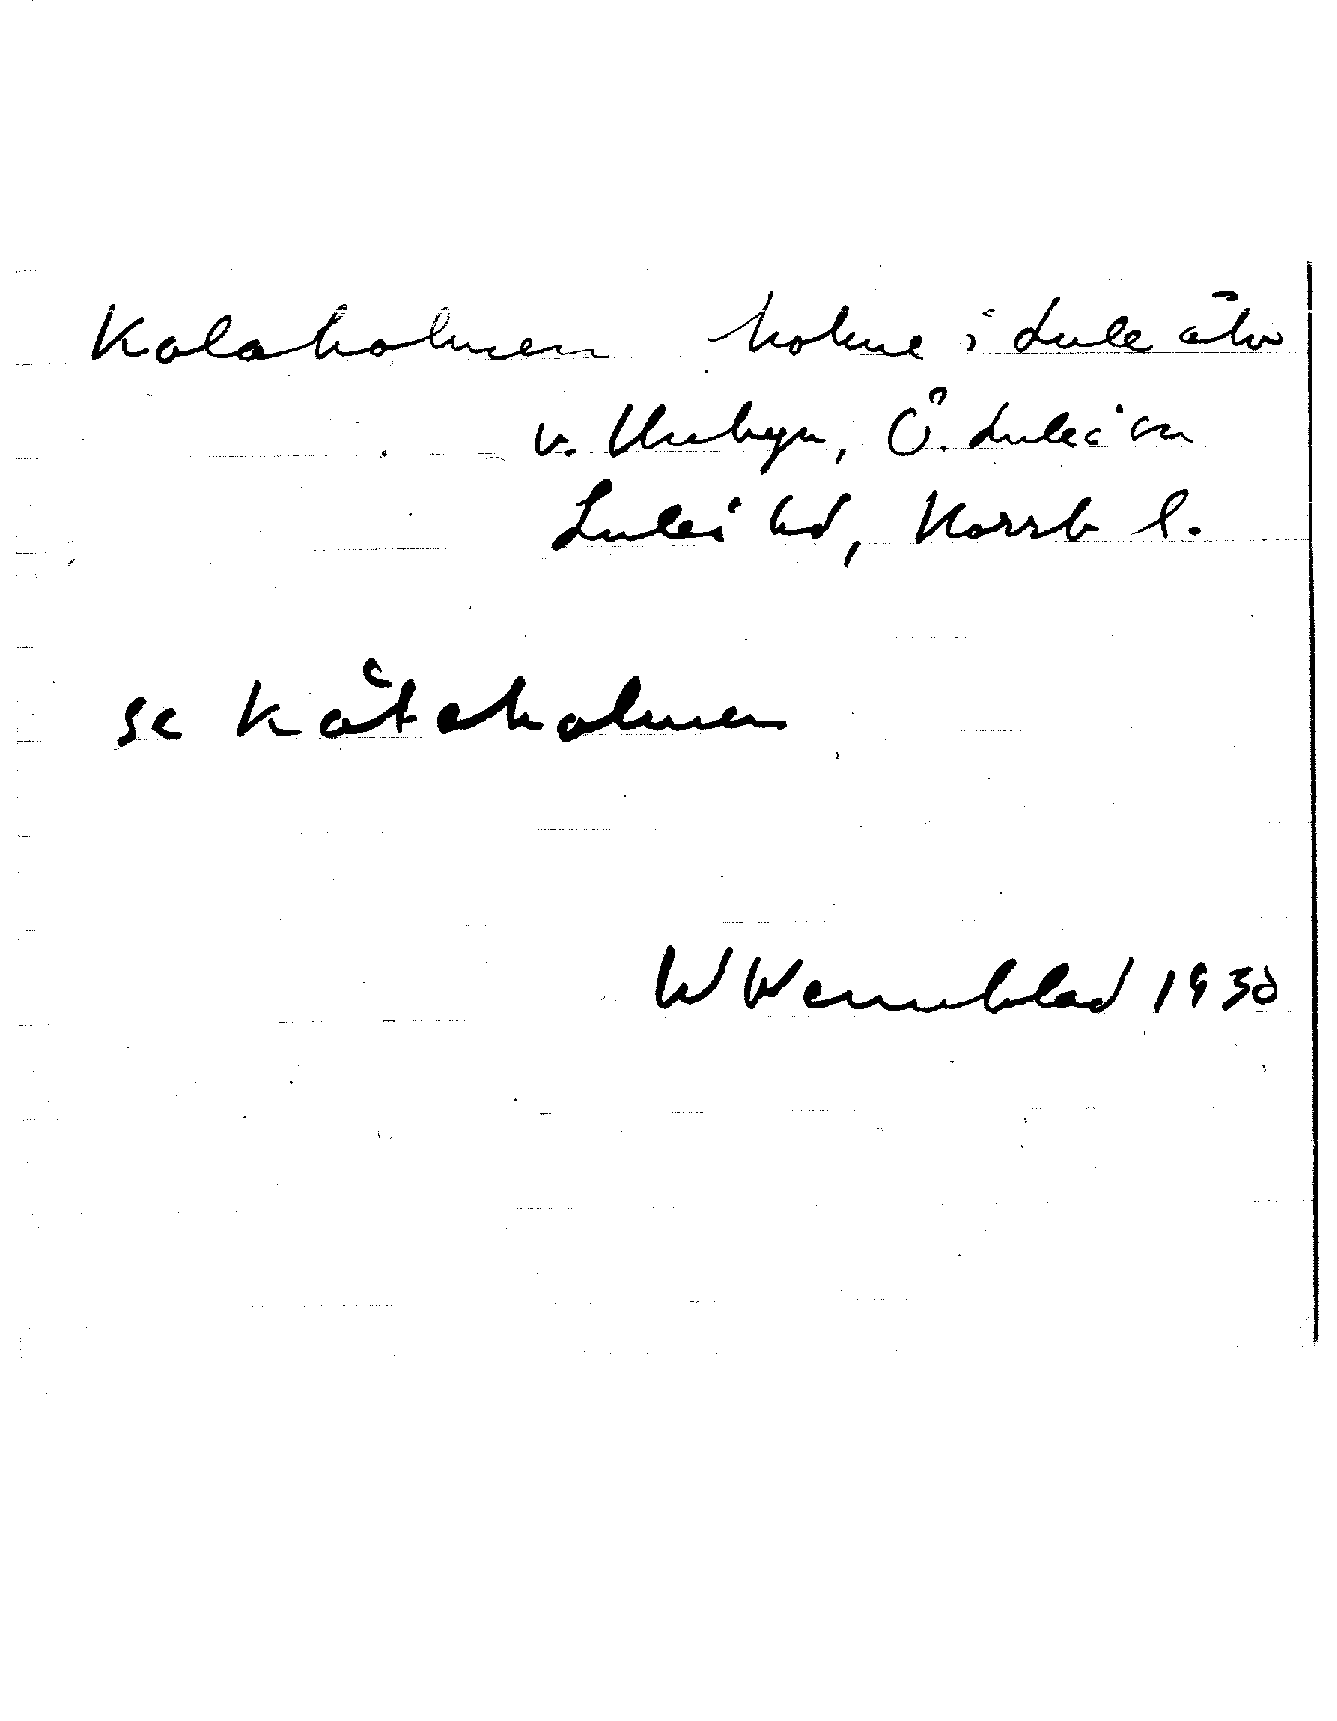 Kolaholmen holme i Lule älv
v. Unbyn, Ö. Luleå sn
Luleå hd, Norrb l.
se Kåtaholmen
W Wennblad 1930